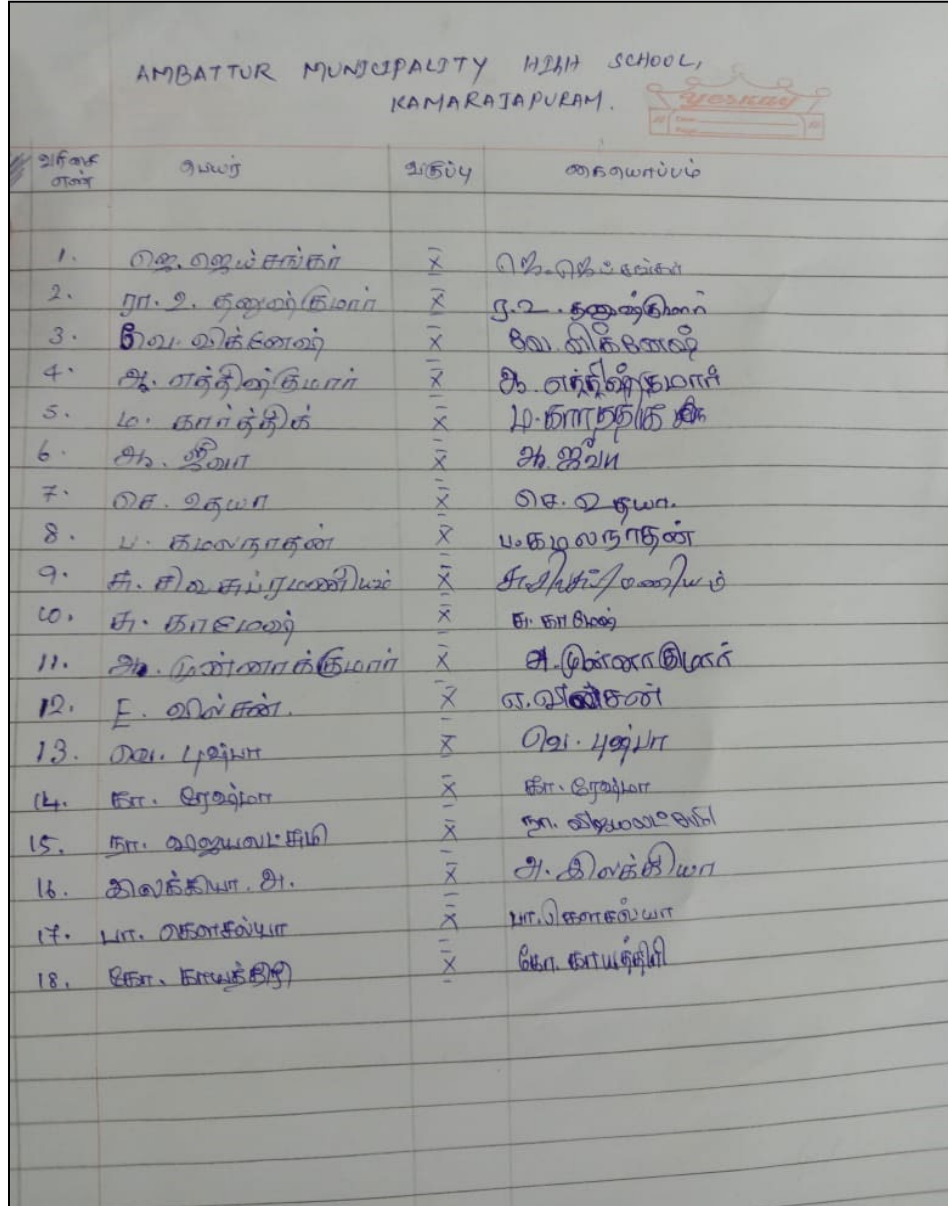 AMBATTUR MUNICIPALITY HIGH SCHOOL,
KAMARAJAPURAM.
வரிசை எண் பெயர் வகுப்பு கையொப்பம்
1. ஜெ. ஜெய்சங்கர் X ஜெ. ஜெய்சங்கர்
2. ரா. உ. தனுஷ்குமார் X ர. உ. தனுஷ்குமார்
3. வே. விக்னேஷ் X வே. விக்னேஷ்
4. ஆ. எத்திஷ்குமார் X ஆ. எத்திஷ்குமார்
5. ம. கார்த்திக் X ம. கார்த்திக்
6. ஆ. ஜீவா X ஆ. ஜீவா
7. செ. உதயா X செ. உதயா.
8. ப. கமலநாதன் X ப. கமலநாதன்
9. சு. சிவசுப்ரமணியம் X
10. சு. காமேஷ் X சு. காமேஷ்
11. ஆ. முன்னாக்குமார் X அ. முன்னாகுமார்
12. E. வில்சன். X எ. வில்சன்
13. வெ. புஷ்பா X வெ. புஷ்பா
14. கா. ரேஷ்மா X கா. ரேஷ்மா
15. நா. விஜயலட்சுமி X நா. விஜயலட்சுமி
16. இலக்கியா. அ. X அ. இலக்கியா
17. பா. கௌசல்யா X பா. கௌசல்யா
18. கோ. காயத்திரி X கோ. காயத்திரி